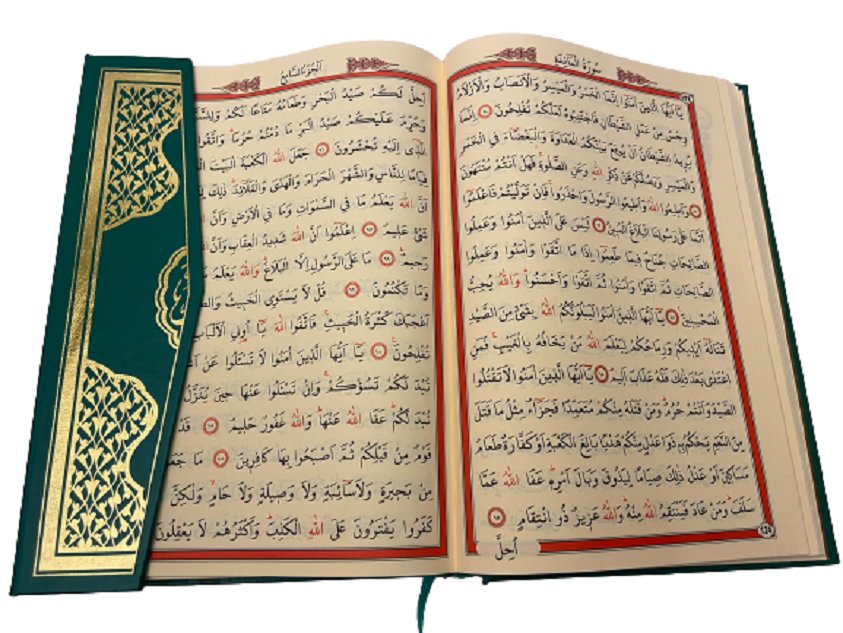 سورة المائدة
يَٓا اَيُّهَا الَّذ۪ينَ اٰمَنُٓوا اِنَّمَا الْخَمْرُ وَالْمَيْسِرُ وَالْاَنْصَابُ وَالْاَزْلَامُ
رِجْسٌ مِنْ عَمَلِ الشَّيْطَانِ فَاجْتَنِبُوهُ لَعَلَّكُمْ تُفْلِحُونَ ٩٠ اِنَّمَا
يُر۪يدُ الشَّيْطَانُ اَنْ يُوقِعَ بَيْنَكُمُ الْعَدَاوَةَ وَالْبَغْضَٓاءَ فِي الْخَمْرِ
وَالْمَيْسِرِ وَيَصُدَّكُمْ عَنْ ذِكْرِ اللّٰهِ وَعَنِ الصَّلٰوةِ فَهَلْ اَنْتُمْ مُنْتَهُونَ
٩١ وَاَط۪يعُوا اللّٰهَ وَاَط۪يعُوا الرَّسُولَ وَاحْذَرُوا فَاِنْ تَوَلَّيْتُمْ فَاعْلَمُٓوا
اَنَّمَا عَلٰى رَسُولِنَا الْبَلَاغُ الْمُب۪ينُ ٩٢ لَيْسَ عَلَى الَّذ۪ينَ اٰمَنُوا وَعَمِلُوا
الصَّالِحَاتِ جُنَاحٌ ف۪يمَا طَعِمُٓوا اِذَا مَا اتَّقَوْا وَاٰمَنُوا وَعَمِلُوا
الصَّالِحَاتِ ثُمَّ اتَّقَوْا وَاٰمَنُوا ثُمَّ اتَّقَوْا وَاَحْسَنُوا وَاللّٰهُ يُحِبُّ
الْمُحْسِن۪ينَ ٩٣ يَٓا اَيُّهَا الَّذ۪ينَ اٰمَنُوا لَيَبْلُوَنَّكُمُ اللّٰهُ بِشَيْءٍ مِنَ الصَّيْدِ
تَنَالُهُٓ اَيْد۪يكُمْ وَرِمَاحُكُمْ لِيَعْلَمَ اللّٰهُ مَنْ يَخَافُهُ بِالْغَيْبِ فَمَنِ
اعْتَدٰى بَعْدَ ذٰلِكَ فَلَهُ عَذَابٌ اَل۪يمٌ ٩٤ يَٓا اَيُّهَا الَّذ۪ينَ اٰمَنُوا لَا تَقْتُلُوا
الصَّيْدَ وَاَنْتُمْ حُرُمٌ وَمَنْ قَتَلَهُ مِنْكُمْ مُتَعَمِّدًا فَجَزَٓاءٌ مِثْلُ مَا قَتَلَ
مِنَ النَّعَمِ يَحْكُمُ بِه۪ ذَوَا عَدْلٍ مِنْكُمْ هَدْيًا بَالِغَ الْكَعْبَةِ اَوْ كَفَّارَةٌ طَعَامُ
مَسَاك۪ينَ اَوْ عَدْلُ ذٰلِكَ صِيَامًا لِيَذُوقَ وَبَالَ اَمْرِه۪ عَفَا اللّٰهُ عَمَّا
سَلَفَ وَمَنْ عَادَ فَيَنْتَقِمُ اللّٰهُ مِنْهُ وَاللّٰهُ عَز۪يزٌ ذُو انْتِقَامٍ ٩٥
اُحِلَّ
الجزء السابع
اُحِلَّ لَكُمْ صَيْدُ الْبَحْرِ وَطَعَامُهُ مَتَاعًا لَكُمْ
وَحُرِّمَ عَلَيْكُمْ صَيْدُ الْبَرِّ مَا دُمْتُمْ حُرُمًا وَاتَّقُوا
الَّذ۪ٓي اِلَيْهِ تُحْشَرُونَ ٩٦ جَعَلَ اللّٰهُ الْكَعْبَةَ الْبَيْتَ
قِيَامًا لِلنَّاسِ وَالشَّهْرَ الْحَرَامَ وَالْهَدْيَ وَالْقَلَٓائِدَ ذٰلِكَ
اَنَّ اللّٰهَ يَعْلَمُ مَا فِي السَّمٰوَاتِ وَمَا فِي الْاَرْضِ وَاَنَّ
شَيْءٍ عَل۪يمٌ ٩٧ اِعْلَمُٓوا اَنَّ اللّٰهَ شَد۪يدُ الْعِقَابِ وَاَنَّ
رَح۪يمٌ ٩٨ مَا عَلَى الرَّسُولِ اِلَّا الْبَلَاغُ وَاللّٰهُ يَعْلَمُ
وَمَا تَكْتُمُونَ ٩٩ قُلْ لَا يَسْتَوِي الْخَب۪يثُ
اَعْجَبَكَ كَثْرَةُ الْخَب۪يثِ فَاتَّقُوا اللّٰهَ يَٓا اُو۬لِي الْاَلْبَابِ
تُفْلِحُونَ ١٠٠ يَٓا اَيُّهَا الَّذ۪ينَ اٰمَنُوا لَا تَسْـَٔلُوا عَنْ
تُبْدَ لَكُمْ تَسُؤْكُمْ وَاِنْ تَسْـَٔلُوا عَنْهَا ح۪ينَ يُنَزَّلُ
تُبْدَ لَكُمْ عَفَا اللّٰهُ عَنْهَا وَاللّٰهُ غَفُورٌ حَل۪يمٌ ١٠١ قَدْ
قَوْمٌ مِنْ قَبْلِكُمْ ثُمَّ اَصْبَحُوا بِهَا كَافِر۪ينَ ١٠٢ مَا جَعَلَ
مِنْ بَح۪يرَةٍ وَلَا سَٓائِبَةٍ وَلَا وَص۪يلَةٍ وَلَا حَامٍ وَلٰكِنَّ
كَفَرُوا يَفْتَرُونَ عَلَى اللّٰهِ الْكَذِبَ وَاَكْثَرُهُمْ لَا يَعْقِلُونَ